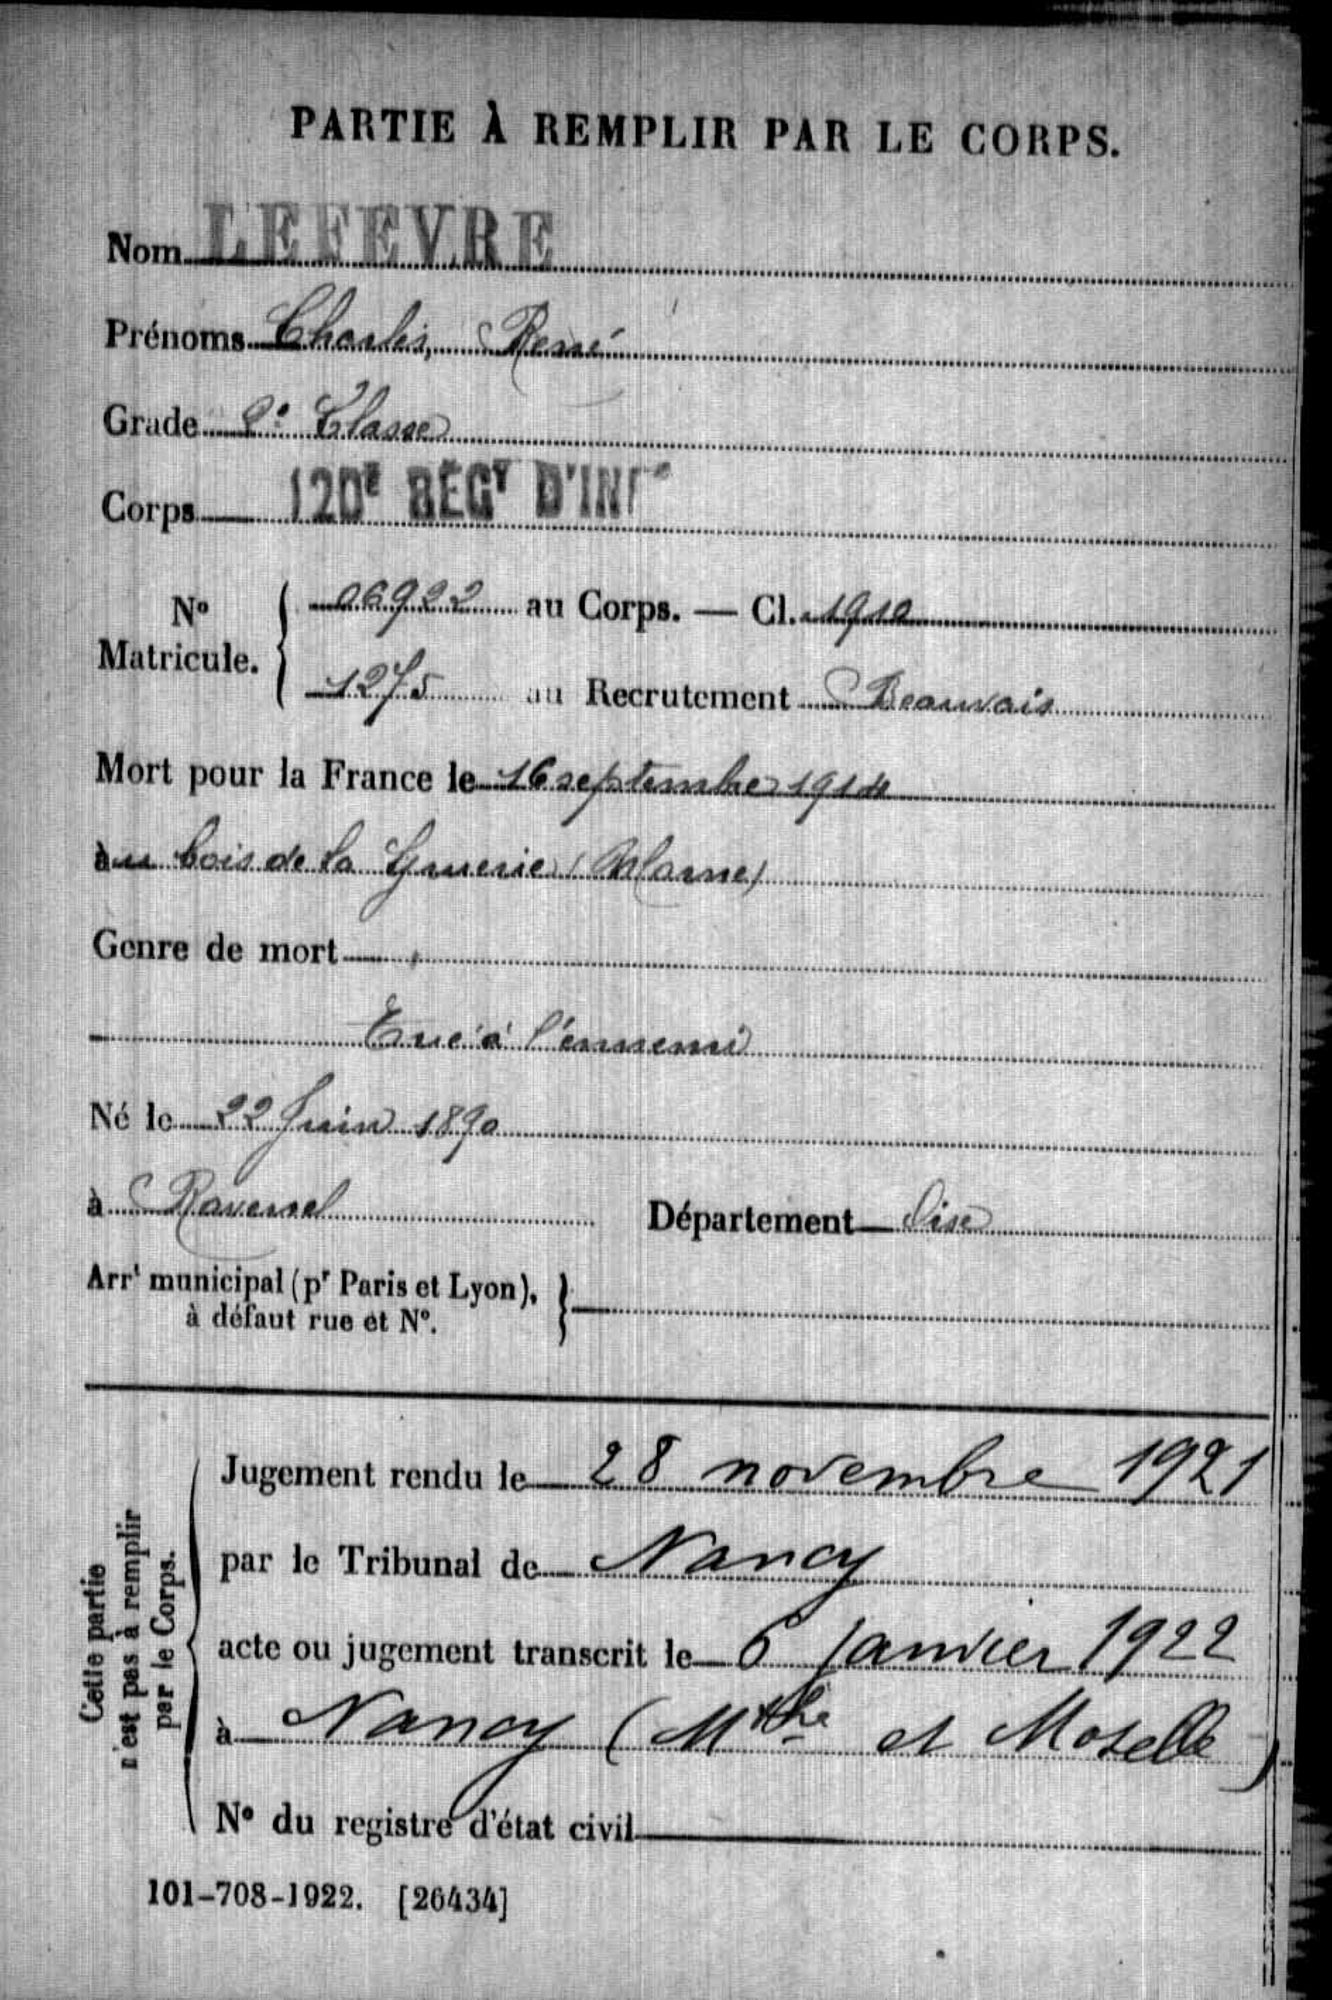 PARTIE À REMPLIR PAR LE CORPS.
Nom LEFEVRE
Prénoms Charles, René
Grade 2e Classe
Corps 120E RÉGT D'INF
No Matricule. 06922 au Corps. — Cl. 1910
1275 au Recrutement Beauvais
Mort pour la France le 16 septembre 1914
au bois de la Gruerie (Marne)
Genre de mort
Tué à l'ennemi
Né le 22 Juin 1890
à Ravenel Département Oise
Arrt municipal (pr Paris et Lyon),
à défaut rue et No.
Cette partie
n'est pas à remplir
par le Corps.
Jugement rendu le 28 novembre 1921
par le Tribunal de Nancy
acte ou jugement transcrit le 6 janvier 1922
à Nancy (Mthe et Moselle)
No du registre d'état civil
101-708-1922. [26434]